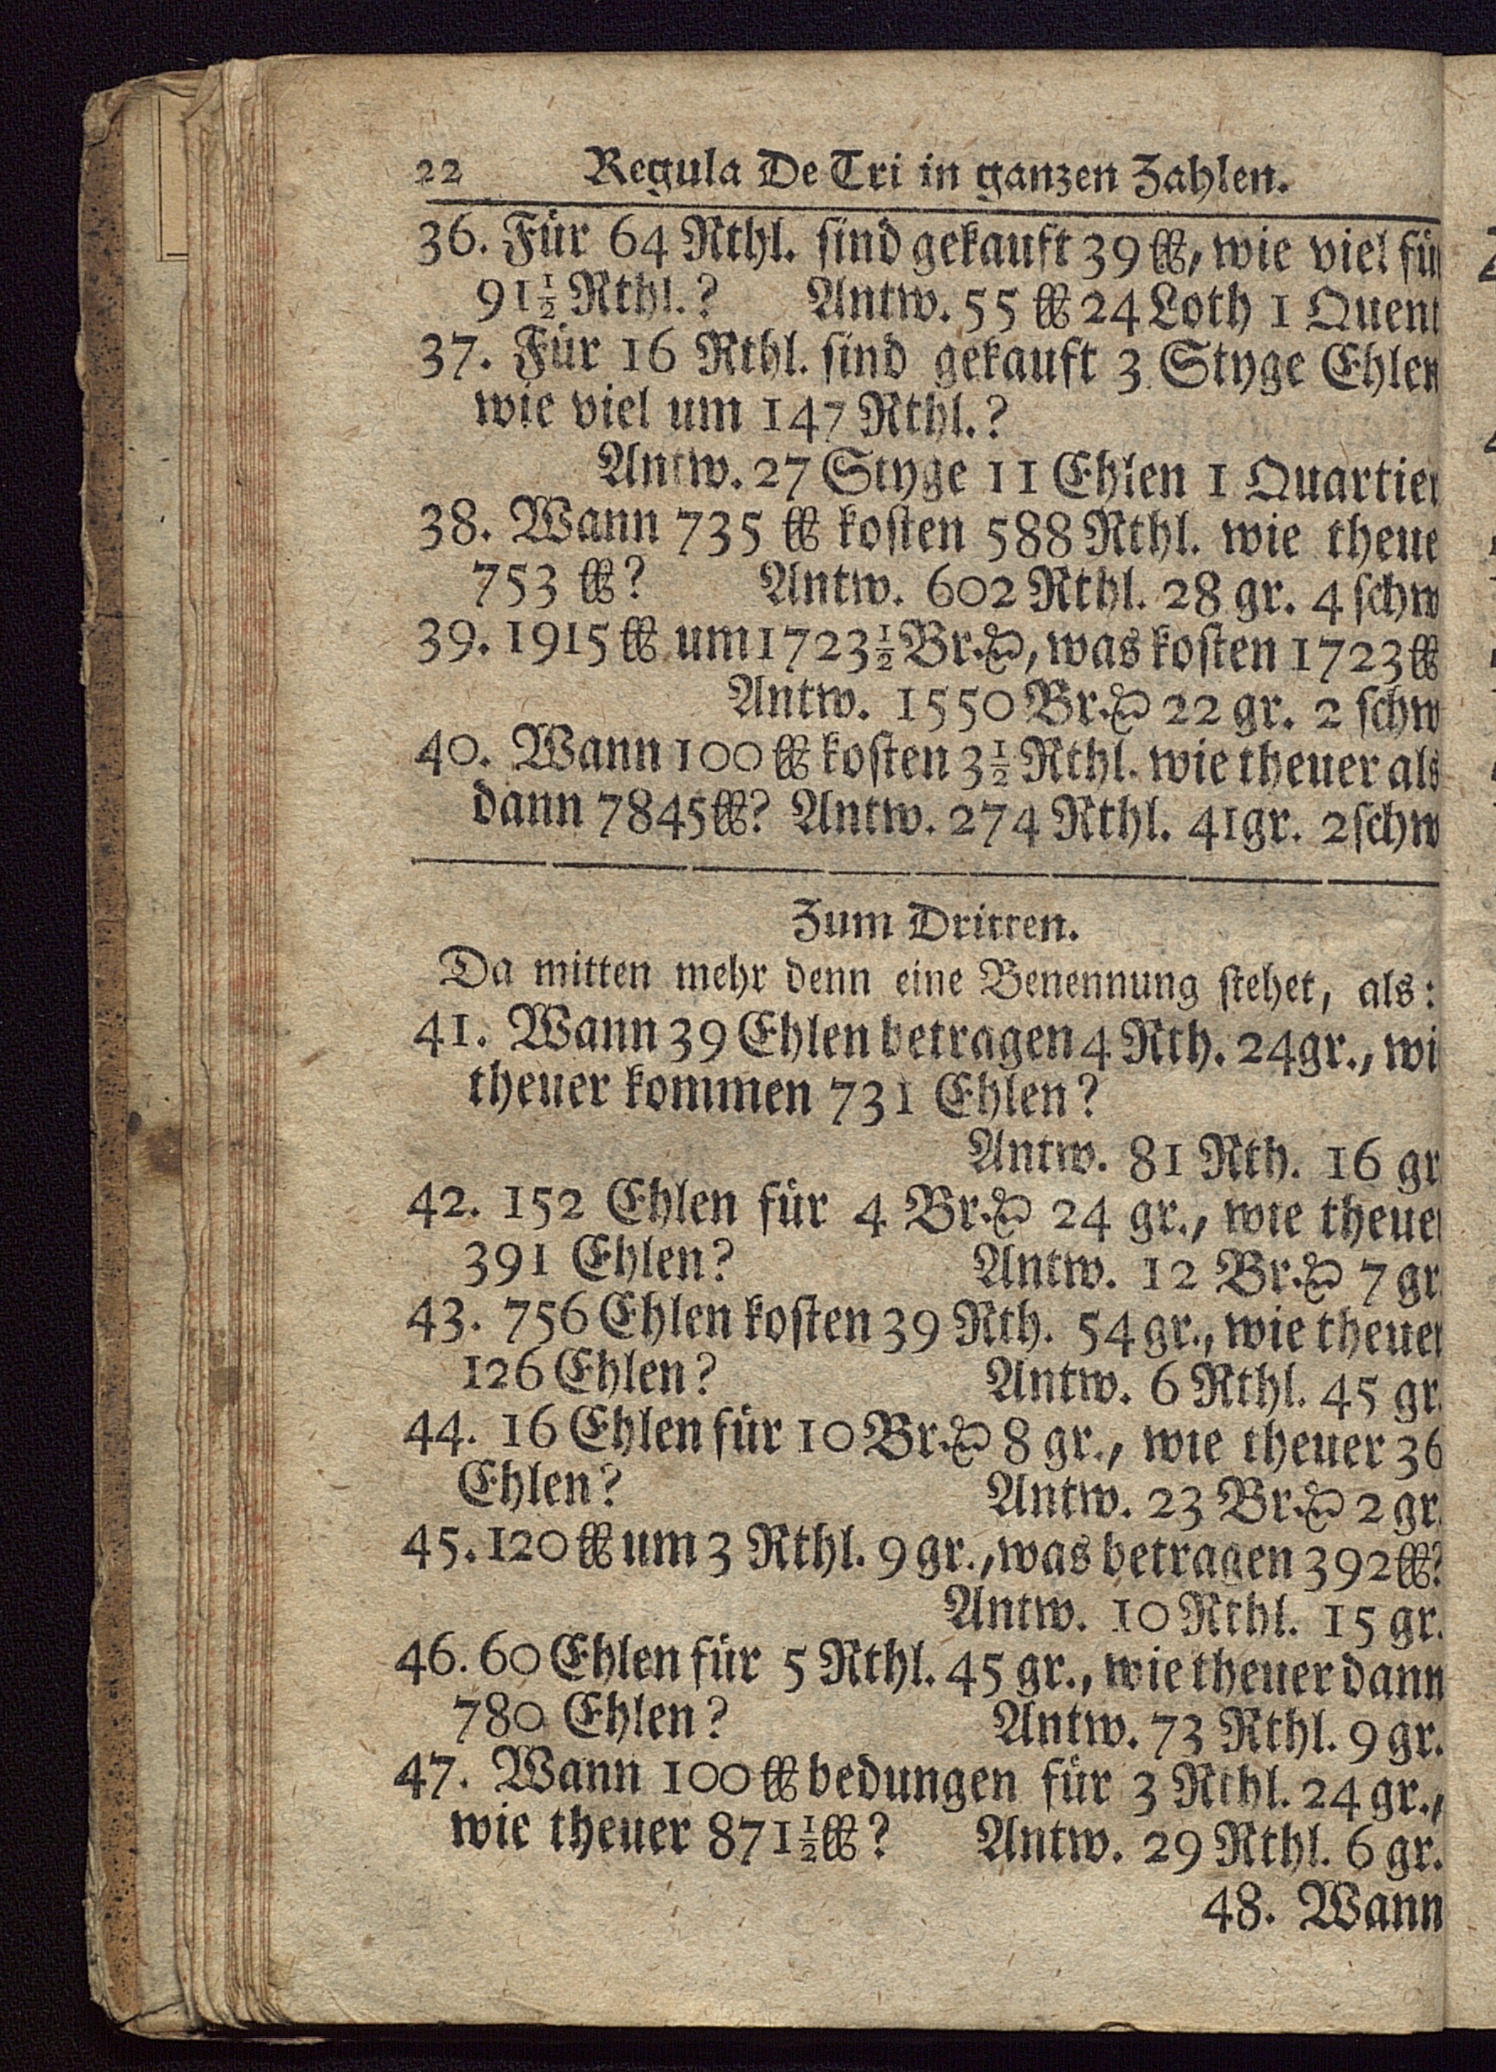 22 Regula De Tri in ganzen Zahlen.
36. Für 64 Rthl. sind gekauft 39 ℔, wie viel fü
91½ Rthl.? Antw. 55 ℔ 24 Loth 1 Quent
37. Für 16 Rthl. sind gekauft 3 Styge Ehlen
wie viel um 147 Rthl.?
Antw. 27 Styge 11 Ehlen 1 Quartier
38. Wann 735 ℔ kosten 588 Rthl. wie theue
753 ℔? Antw. 602 Rthl. 28 gr. 4 schw
39. 1915 ℔ um 1723½ Br.₰, was kosten 1723 ℔
Antw. 1550 Br.₰ 22 gr. 2 schw
40. Wann 100 ℔ kosten 3½ Rthl. wie theuer als
dann 7845 ℔? Antw. 274 Rthl. 41gr. 2schw
Zum Dritten.
Da mitten mehr denn eine Benennung stehet, als:
41. Wann 39 Ehlen betragen 4 Rth. 24gr., wi
theuer kommen 731 Ehlen?
Antw. 81 Rth. 16 gr
42. 152 Ehlen für 4 Br.₰ 24 gr., wie theuer
391 Ehlen? Antw. 12 Br.₰ 7 gr.
43. 756 Ehlen kosten 39 Rth. 54 gr., wie theuer
126 Ehlen? Antw. 6 Rthl. 45 gr.
44. 16 Ehlen für 10 Br.₰ 8 gr., wie theuer 36
Ehlen? Antw. 23 Br.₰ 2 gr.
45. 120 ℔ um 3 Rthl. 9 gr., was betragen 392 ℔?
Antw. 10 Rthl. 15 gr.
46. 60 Ehlen für 5 Rthl. 45 gr., wie theuer dann
780 Ehlen? Antw. 73 Rthl. 9 gr.
47. Wann 100 ℔ bedungen für 3 Rthl. 24 gr.,
wie theuer 871½ ℔? Antw. 29 Rthl. 6 gr.
48. Wann